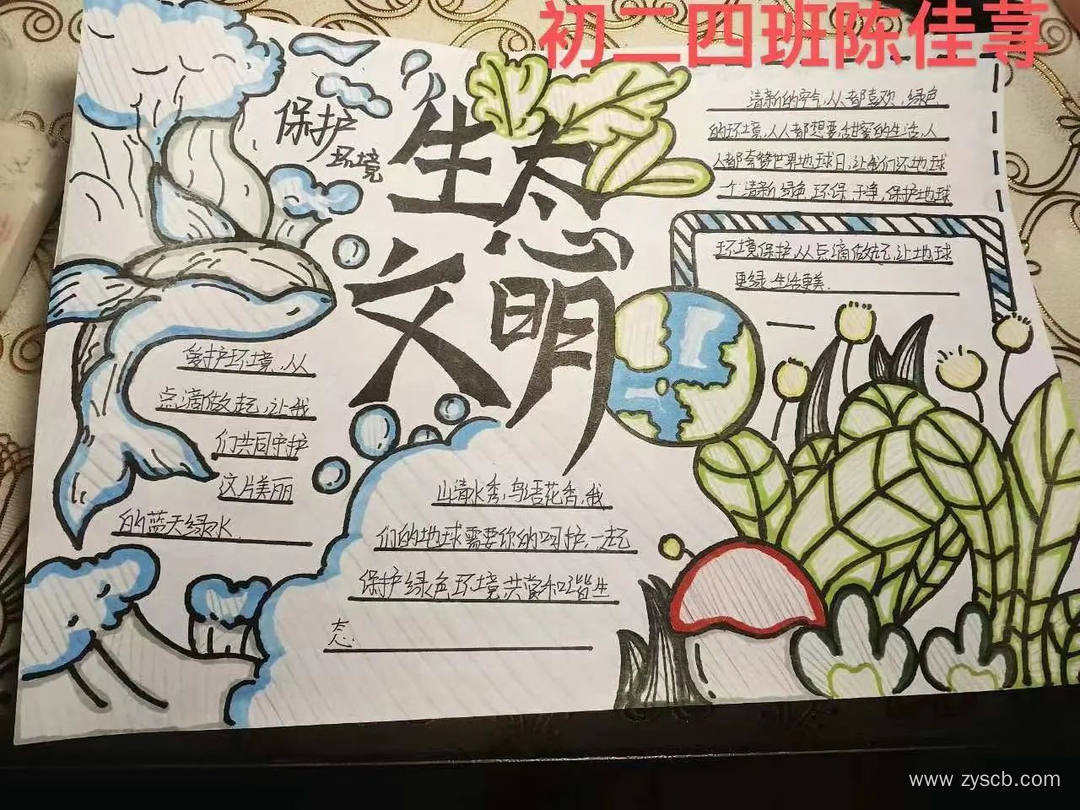 初二四班陈佳荨
保护
环境
生态
文明
清新的空气,人人都喜欢,绿色
的环境,人人都想要,甜蜜的生活,人
人都奢赞世界地球日,让我们还地球
一个清新,绿色,环保,干净,保护地球
环境保护,从点滴做起,让地球
更绿,生活更美.
爱护环境,从
点滴做起,让我
们共同守护
这片美丽
的蓝天绿水.
山清水秀,鸟语花香,我
们的地球需要你的呵护,一起
保护绿色环境共赏和谐生
态.
www.zyscb.com